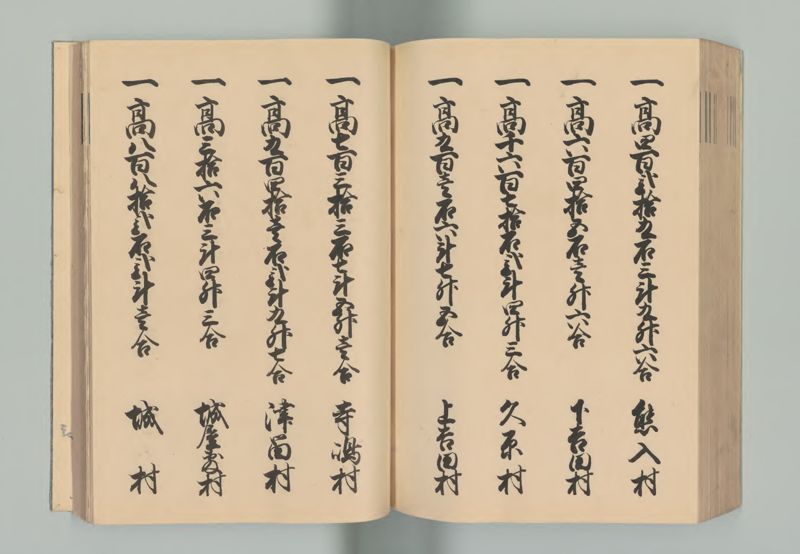 一高四百弐拾九石三斗九升六合 熊入村
一高六百四拾五石壱升六合 下吉田村
一高千六百七拾石弐斗四升三合 久原村
一高九百壱石六斗七升五合 上吉田村
一高七百三拾三石七斗五升壱合 寺嶋村
一高九百四拾壱石弐斗九升七合 津留村
一高三拾六石三斗四升三合 城村
一高八百八拾弐石弐斗壱合 城村